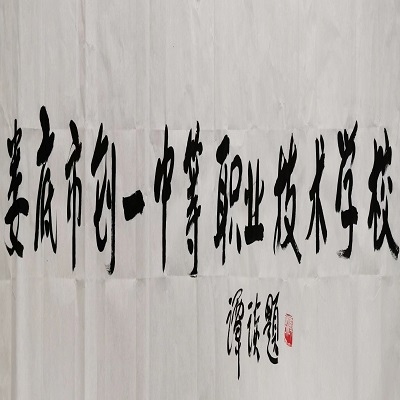 娄底市创一中等职业技术学校
谭谈题